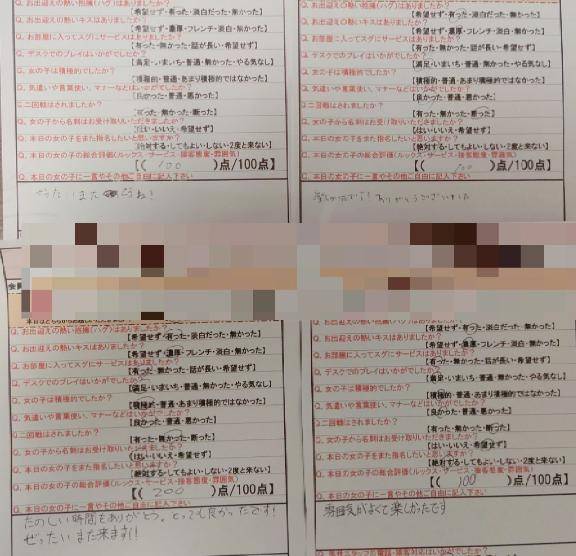 Q. お出迎えの熱い抱擁(ハグ)はありましたか?
【希望せず・有った・淡白だった・無かった】
Q. お出迎えの熱いキスはありましたか?
【希望せず・濃厚・フレンチ・淡白・無かった】
Q. お部屋に入ってスグにサービスはありましたか?
【有った・無かった・話が長い・希望せず】
Q. デスクでのプレイはいかがでしたか?
【満足・いまいち・普通・無かった・やる気なし】
Q. 女の子は積極的でしたか?
【積極的・普通・あまり積極的ではなかった】
Q. 気遣いや言葉使い、マナーなどはいかがでしたか?
【良かった・普通・悪かった】
Q.二回戦はされましたか?
【有った・無かった・断った】
Q. 女の子から名刺はお受け取りいただきましたか?
【はい・いいえ・希望せず】
Q. 本日の女の子をまた指名したいと思いますか?
【絶対する・してもよい・しない・2度と来ない】
Q. 本日の女の子の総合評価(ルックス・サービス・接客態度・雰囲気)
【( 100 )点/100点】
Q. 本日の女の子に一言やその他ご自由に記入下さい
Q. お出迎えの熱い抱擁(ハグ)はありましたか?
【希望せず・有った・淡白だった・無かった】
Q. お出迎えの熱いキスはありましたか?
【希望せず・濃厚・フレンチ・淡白・無かった】
Q. お部屋に入ってスグにサービスはありましたか?
【有った・無かった・話が長い・希望せず】
Q. デスクでのプレイはいかがでしたか?
【満足・いまいち・普通・無かった・やる気なし】
Q. 女の子は積極的でしたか?
【積極的・普通・あまり積極的ではなかった】
Q. 気遣いや言葉使い、マナーなどはいかがでしたか?
【良かった・普通・悪かった】
Q.二回戦はされましたか?
【有った・無かった・断った】
Q. 女の子から名刺はお受け取りいただきましたか?
【はい・いいえ・希望せず】
Q. 本日の女の子をまた指名したいと思いますか?
【絶対する・してもよい・しない・2度と来ない】
Q. 本日の女の子の総合評価(ルックス・サービス・接客態度・雰囲気)
【( )点/100点】
Q. 本日の女の子に一言やその他ご自由に記入下さい
ありがとうございました
Q. お出迎えの熱い抱擁(ハグ)はありましたか?
【希望せず・有った・淡白だった・無かった】
Q. お出迎えの熱いキスはありましたか?
【希望せず・濃厚・フレンチ・淡白・無かった】
Q. お部屋に入ってスグにサービスはありましたか?
【有った・無かった・話が長い・希望せず】
Q. デスクでのプレイはいかがでしたか?
【満足・いまいち・普通・無かった・やる気なし】
Q. 女の子は積極的でしたか?
【積極的・普通・あまり積極的ではなかった】
Q. 気遣いや言葉使い、マナーなどはいかがでしたか?
【良かった・普通・悪かった】
Q.二回戦はされましたか?
【有った・無かった・断った】
Q. 女の子から名刺はお受け取りいただきましたか?
【はい・いいえ・希望せず】
Q. 本日の女の子をまた指名したいと思いますか?
【絶対する・してもよい・しない・2度と来ない】
Q. 本日の女の子の総合評価(ルックス・サービス・接客態度・雰囲気)
【( 200 )点/100点】
Q. 本日の女の子に一言やその他ご自由に記入下さい
たのしい時間をありがとう。とっても良かったです!
ぜったいまた来ます!!
Q. お出迎えの熱い抱擁(ハグ)はありましたか?
【希望せず・有った・淡白だった・無かった】
Q. お出迎えの熱いキスはありましたか?
【希望せず・濃厚・フレンチ・淡白・無かった】
Q. お部屋に入ってスグにサービスはありましたか?
【有った・無かった・話が長い・希望せず】
Q. デスクでのプレイはいかがでしたか?
【満足・いまいち・普通・無かった・やる気なし】
Q. 女の子は積極的でしたか?
【積極的・普通・あまり積極的ではなかった】
Q. 気遣いや言葉使い、マナーなどはいかがでしたか?
【良かった・普通・悪かった】
Q.二回戦はされましたか?
【有った・無かった・断った】
Q. 女の子から名刺はお受け取りいただきましたか?
【はい・いいえ・希望せず】
Q. 本日の女の子をまた指名したいと思いますか?
【絶対する・してもよい・しない・2度と来ない】
Q. 本日の女の子の総合評価(ルックス・サービス・接客態度・雰囲気)
【( 100 )点/100点】
Q. 本日の女の子に一言やその他ご自由に記入下さい
雰囲気がよくて楽しかったです